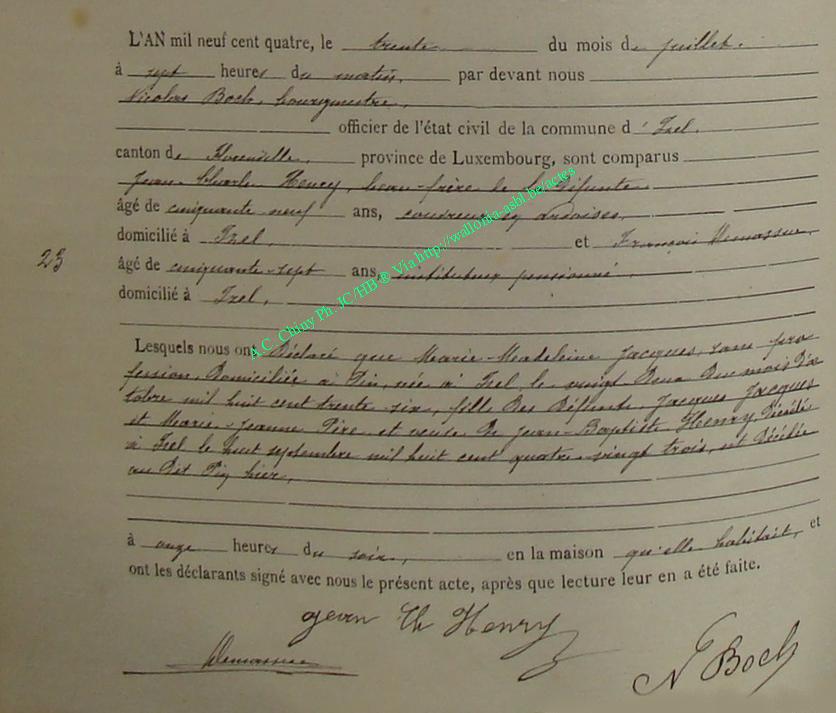 L'AN mil neuf cent quatre, le trente du mois de juillet.
à sept heures du matin, par devant nous
Nicolas Boch, bourgmestre,
officier de l'état civil de la commune d'Izel.
canton de Florenville, province de Luxembourg, sont comparus
Jean Charles Henry, beau-frère de la défunte
âgé de cinquante neuf ans, couvreur en ardoises,
domicilié à Izel, et François
23
âgé de cinquante-sept ans, instituteur pensionné
domicilié à Izel,
Lesquels nous ont déclaré que Marie-Madeleine Jacques, sans pro
fession, domiciliée à Pin, née à Izel le vingt deux du mois d'oc
tobre mil huit cent trente six, fille des défunts Jacques Jacques
et Marie-Jeanne Pire et veuve de Jean-Baptiste Henry, décédé
à Izel le huit septembre mil huit cent quatre-vingt trois, est décédée
au dit Pin hier,
à onze heures du soir, en la maison qu'elle habitait, et
ont les déclarants signé avec nous le présent acte, après que lecture leur en a été faite.
Jean Ch Henry
N Boch
A.C. Chiny Ph. JC/HB ® Via http://wallonia-asbl.be/actes